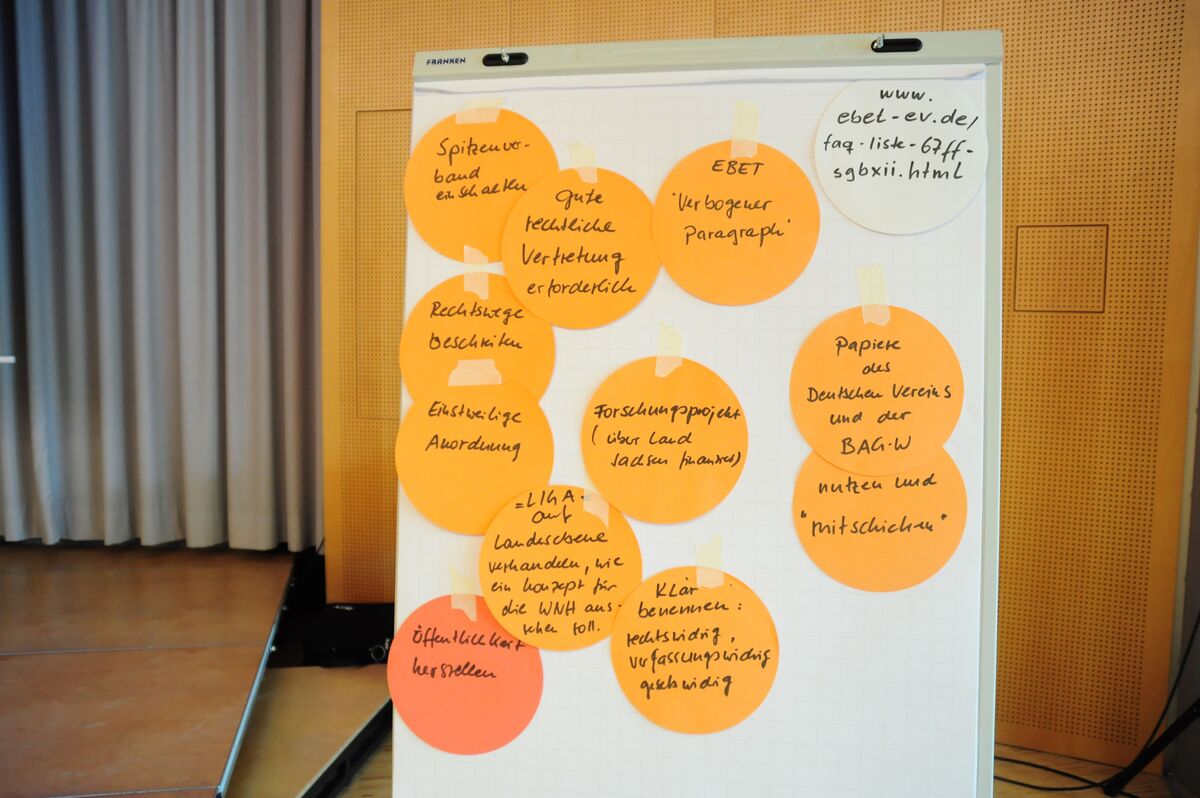 FRANKEN
Spitzenver-
band
einschalten
Gute
rechtliche
Vertretung
erforderlich
EBET
"Verbogener
Paragraph"
www.
ebet-ev.de/
faq-liste-67ff-
sgbxii.html
Rechtswege
beschreiten
Einstweilige
Anordnung
Forschungsprojekt
(über Land
Sachsen finanziert)
Papiere
des
Deutschen Vereins
und der
BAG-W
nutzen und
"mitschicken"
=LIGA-
auf
Landesebene
verhandeln, wie
ein Konzept für
die WNH aus-
sehen soll.
Klar
benennen:
rechtswidrig,
verfassungswidrig
gesetzwidrig
Öffentlichkeit
herstellen